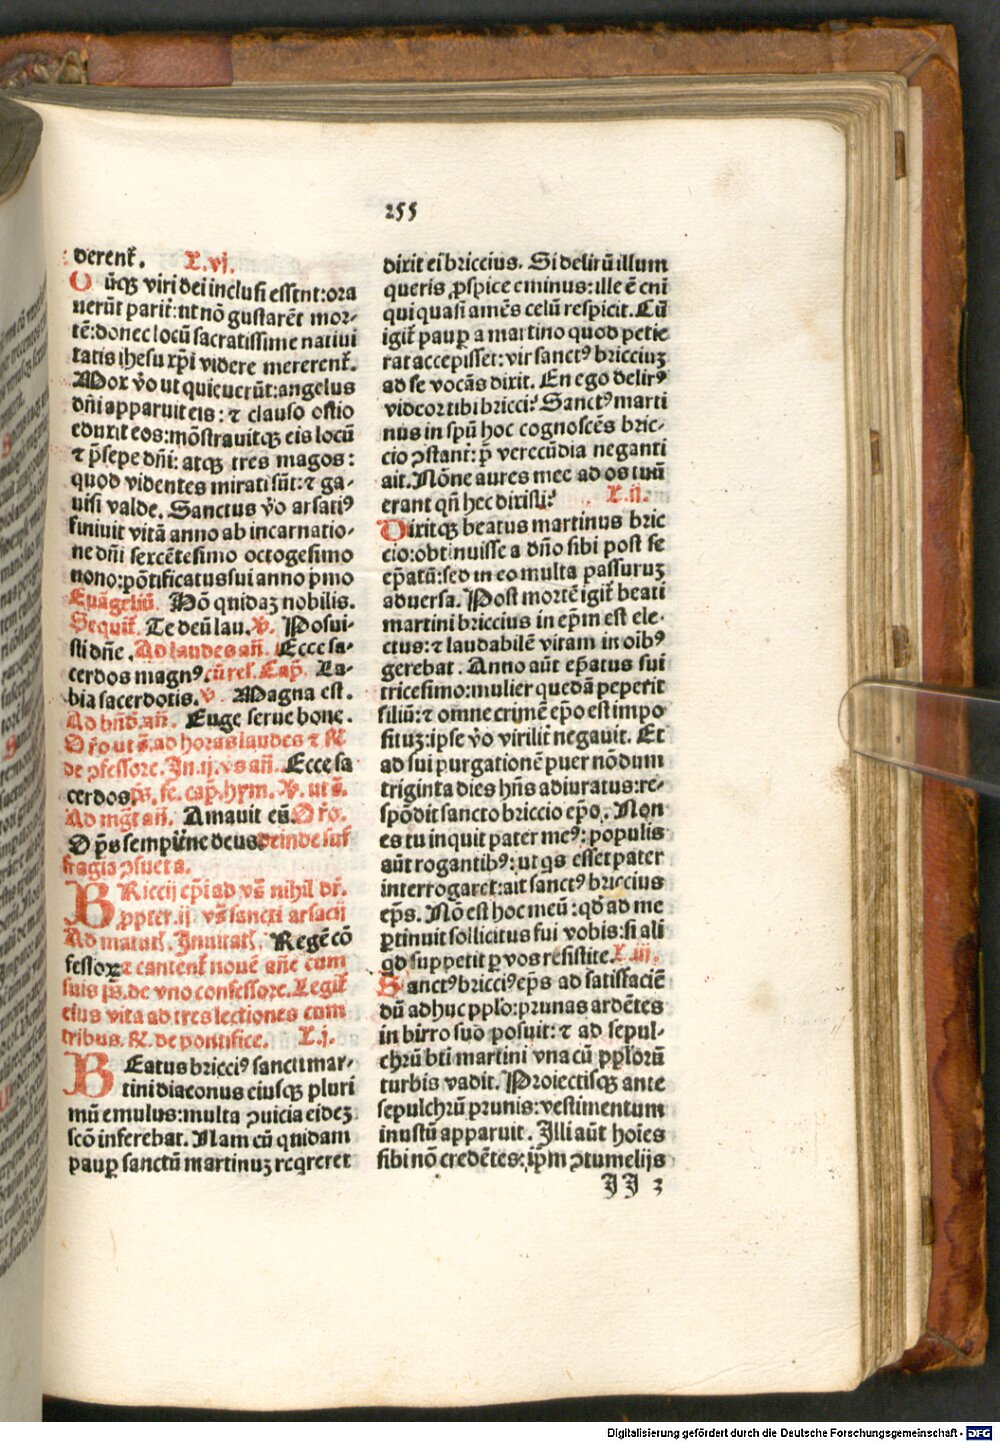 255
derent᷑. L.vj.
Cūcꝗ viri dei inclusi essent:ora
uerūt parit᷑:ut nō gustarēt mor-
tē:donec locū sacratissime natiui
tatis ihesu xp̄i videre mererent᷑.
Mox v̊o ut quieuerūt:angelus
dn̄i apparuit eis: ⁊ clauso ostio
eduxit eos:mōstrauitqꝫ eis locū
⁊ p̄sepe dn̄i: atqꝫ tres magos:
quod videntes mirati sūt:⁊ ga-
uisi valde. Sanctus v̊o arsatiꝰ
finiuit vitā anno ab incarnatio-
ne dn̄i sexcētesimo octogesimo
nono:pōtificatus sui anno pͥmo
Euāgeliū. Hō quidaꝫ nobilis.
Sequit᷑. Te deū lau. V. Posui-
sti dn̄e. Ad laudes an̄. Ecce sa-
cerdos magnꝰ cū rel. Cap̄. La-
bia sacerdotis. V. Magna est.
Ad bn̄d. an̄. Euge serue bone.
Or̄o ut s̄. ad horas laudes ⁊ R̄
de ꝯfessore. In .ij. vs̄ an̄. Ecce sa
cerdos ps̄. fe. cap. hym. V. ut s̄.
Ad mgt̄ an̄. Amauit eū. Or̄o.
O p̄s sempit̄ne deus. deinde suf
fragia ꝯsueta.
BRiccij ep̄i ad vs̄ nihil dr̄.
ꝓpter .ij. vs̄ sancti arsacij
Ad matut᷑. Inuitat᷑. Regē cō
fessoꝝ ⁊ cantent᷑ nouē an̄e cum
suis ps̄. de vno confessore. Legit᷑
eius vita ad tres lectiones cum
tribus. R̄. de pontifice. L.j.
BEatus bricciꝰ sancti mar-
tini diaconus eiusqꝫ pluri
mū emulus:multa ꝯuicia eideꝫ
scō inferebat. Nam cū quidam
pauꝑ sanctū martinuꝫ reqͥreret
dixit ei briccius. Si delirū illum
queris ꝓspice eminus:ille ē eni᷑
qui quasi amēs celū respicit. Cū
igit᷑ pauꝑ a martino quod petie
rat accepisset:vir sanctꝰ bricciuꝫ
ad se vocās dixit. En ego delirꝰ
videor tibi bricci? Sanctꝰ marti
nus in sp̄u hoc cognoscēs bric-
cio ꝯstant᷑: p̄ verecūdia neganti
ait. Nōne aures mee ad os tuū
erant qn̄ hec dixisti? L.ij.
Dixitqꝫ beatus martinus bric
cio:obtinuisse a dn̄o sibi post se
ep̄atū:sed in eo multa passuruꝫ
aduersa. Post mortē igit᷑ beati
martini briccius in ep̄m est ele-
ctus:⁊ laudabilē vitam in oībꝰ
gerebat. Anno aūt ep̄atus sui
tricesimo:mulier quedā peperit
filiū:⁊ omne crimē ep̄o est impo
situꝫ:ipse v̊o virilit᷑ negauit. Et
ad sui purgationē puer nōdum
triginta dies hn̄s adiuratus:re-
spōdit sancto briccio ep̄o. Non
es tu inquit pater meꝰ: populis
aūt rogantibꝰ:ut qͥs esset pater
interrogaret:ait sanctꝰ briccius
ep̄s. Nō est hoc meū:qd̄ ad me
ꝑtinuit sollicitus fui vobis:si ali
qd̄ suppetit ꝑ vos resistite. L.iij.
Sanctꝰ bricciꝰ ep̄s ad satisfaciē
dū adhuc pplo:prunas ardētes
in birro suo posuit: ⁊ ad sepul-
chrū bt̄i martini vna cū pplorū
turbis vadit. Proiectisqꝫ ante
sepulchrū prunis:vestimentum
inustū apparuit. Illi aūt hoīes
sibi nō credētes:ip̄m ꝯtumelijs
JJ 3
Digitalisierung gefördert durch die Deutsche Forschungsgemeinschaft - DFG